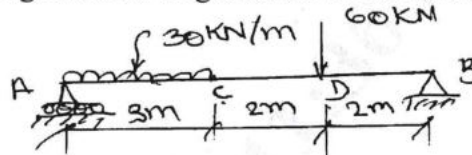 30KN/m
60KM
A
B
C
D
3m
2m
2m